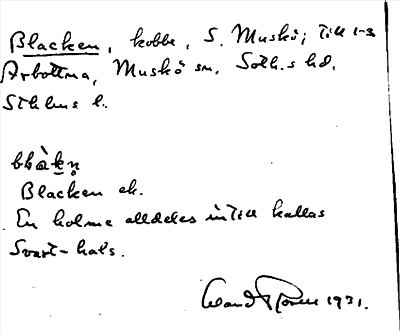 Blacken, kobbe, S. Muskö; till 1-3
Arbottna, Muskö sn, Soth.s hd,
Sthlms l.
Blacken ek.
En holme alldeles intill kallas
Svart-hals.
1931.